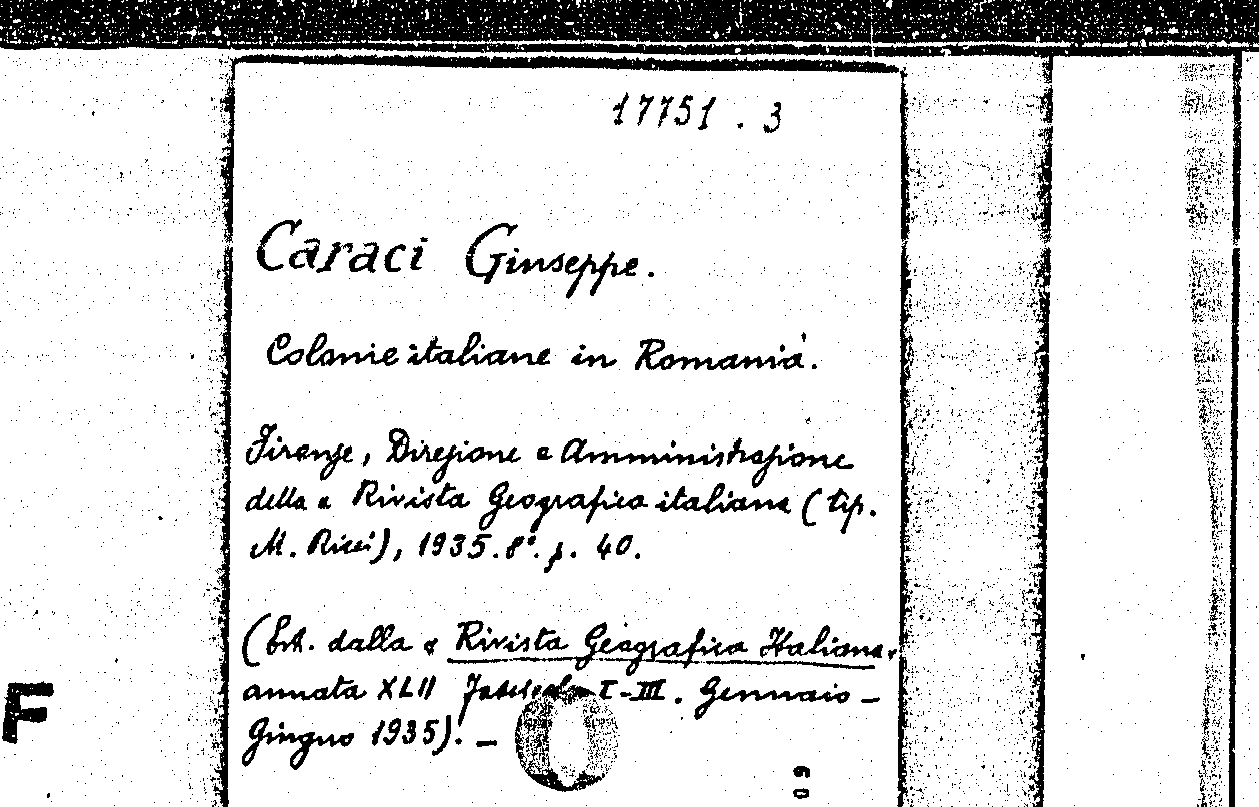 17751 . 3
Caraci Giuseppe.
Colonie italiane in Romania.
Firenze, Direzione e Amministrazione
della « Rivista Geografica italiana ( tip.
M. Ricci), 1935. 8°. p. 40.
(Est. dalla « Rivista Geografica Italiana »
annata XLII Fascicolo I-III. Gennaio –
Giugno 1935). –
F
09